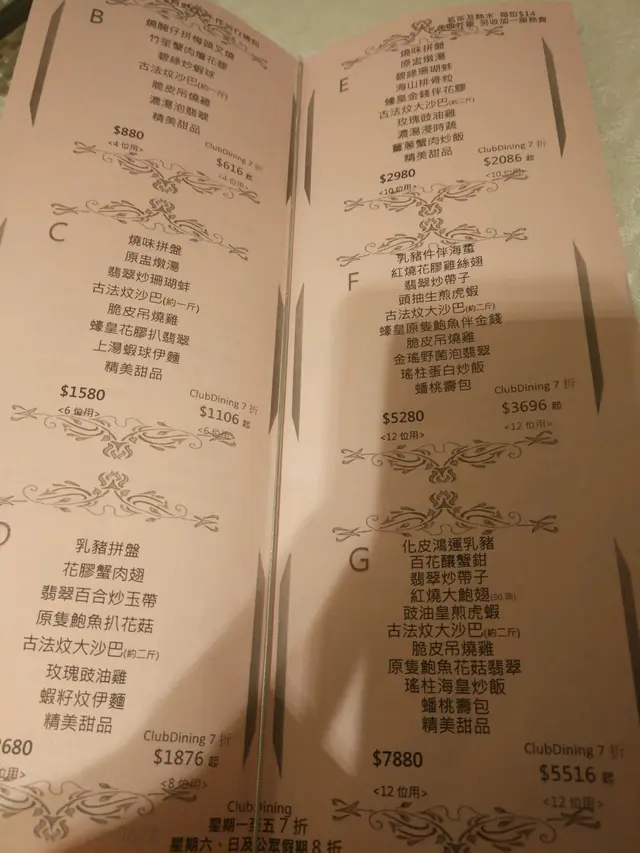 B
燒腩仔拼梅頭叉燒
竹笙蟹肉燴花膠
碧綠炒蝦球
古法炆沙巴(約一斤)
脆皮吊燒雞
濃湯泡翡翠
精美甜品
$880
<4位用>
ClubDining 7 折
$616 起
<4位用>
C
燒味拼盤
原盅燉湯
翡翠炒珊瑚蚌
古法炆沙巴(約一斤)
脆皮吊燒雞
蠔皇花膠扒翡翠
上湯蝦球伊麵
精美甜品
$1580
<6位用>
ClubDining 7 折
$1106 起
<6位用>
乳豬拼盤
花膠蟹肉翅
翡翠百合炒玉帶
原隻鮑魚扒花菇
古法炆大沙巴(約二斤)
玫瑰豉油雞
蝦籽炆伊麵
精美甜品
2680
位用>
ClubDining 7 折
$1876 起
<8位用>
茗茶及熱水 每位$14
另收加一服務費
E
燒味拼盤
原盅燉湯
碧綠珊瑚蚌
海山拼骨粒
蠔皇金錢伴花膠
古法炆大沙巴(約二斤)
玫瑰豉油雞
濃湯浸時蔬
薑蔥蟹肉炒飯
精美甜品
$2980
<10位用>
ClubDining 7 折
$2086 起
<10位用>
F
乳豬件伴海蜇
紅燒花膠雞絲翅
翡翠炒帶子
頭抽生煎虎蝦
古法炆大沙巴(約二斤)
蠔皇原隻鮑魚伴金錢
脆皮吊燒雞
金瑤野菌泡翡翠
瑤柱蛋白炒飯
蟠桃壽包
$5280
<12 位用>
ClubDining 7 折
$3696 起
<12 位用>
G
化皮鴻運乳豬
百花釀蟹鉗
翡翠炒帶子
紅燒大鮑翅(30 頭)
豉油皇煎虎蝦
古法炆大沙巴(約二斤)
脆皮吊燒雞
原隻鮑魚花菇翡翠
瑤柱海皇炒飯
蟠桃壽包
精美甜品
$7880
<12 位用>
ClubDining 7 折
$5516 起
<12 位用>
ClubDining
星期一至五 7 折
星期六、日及公眾假期 8 折